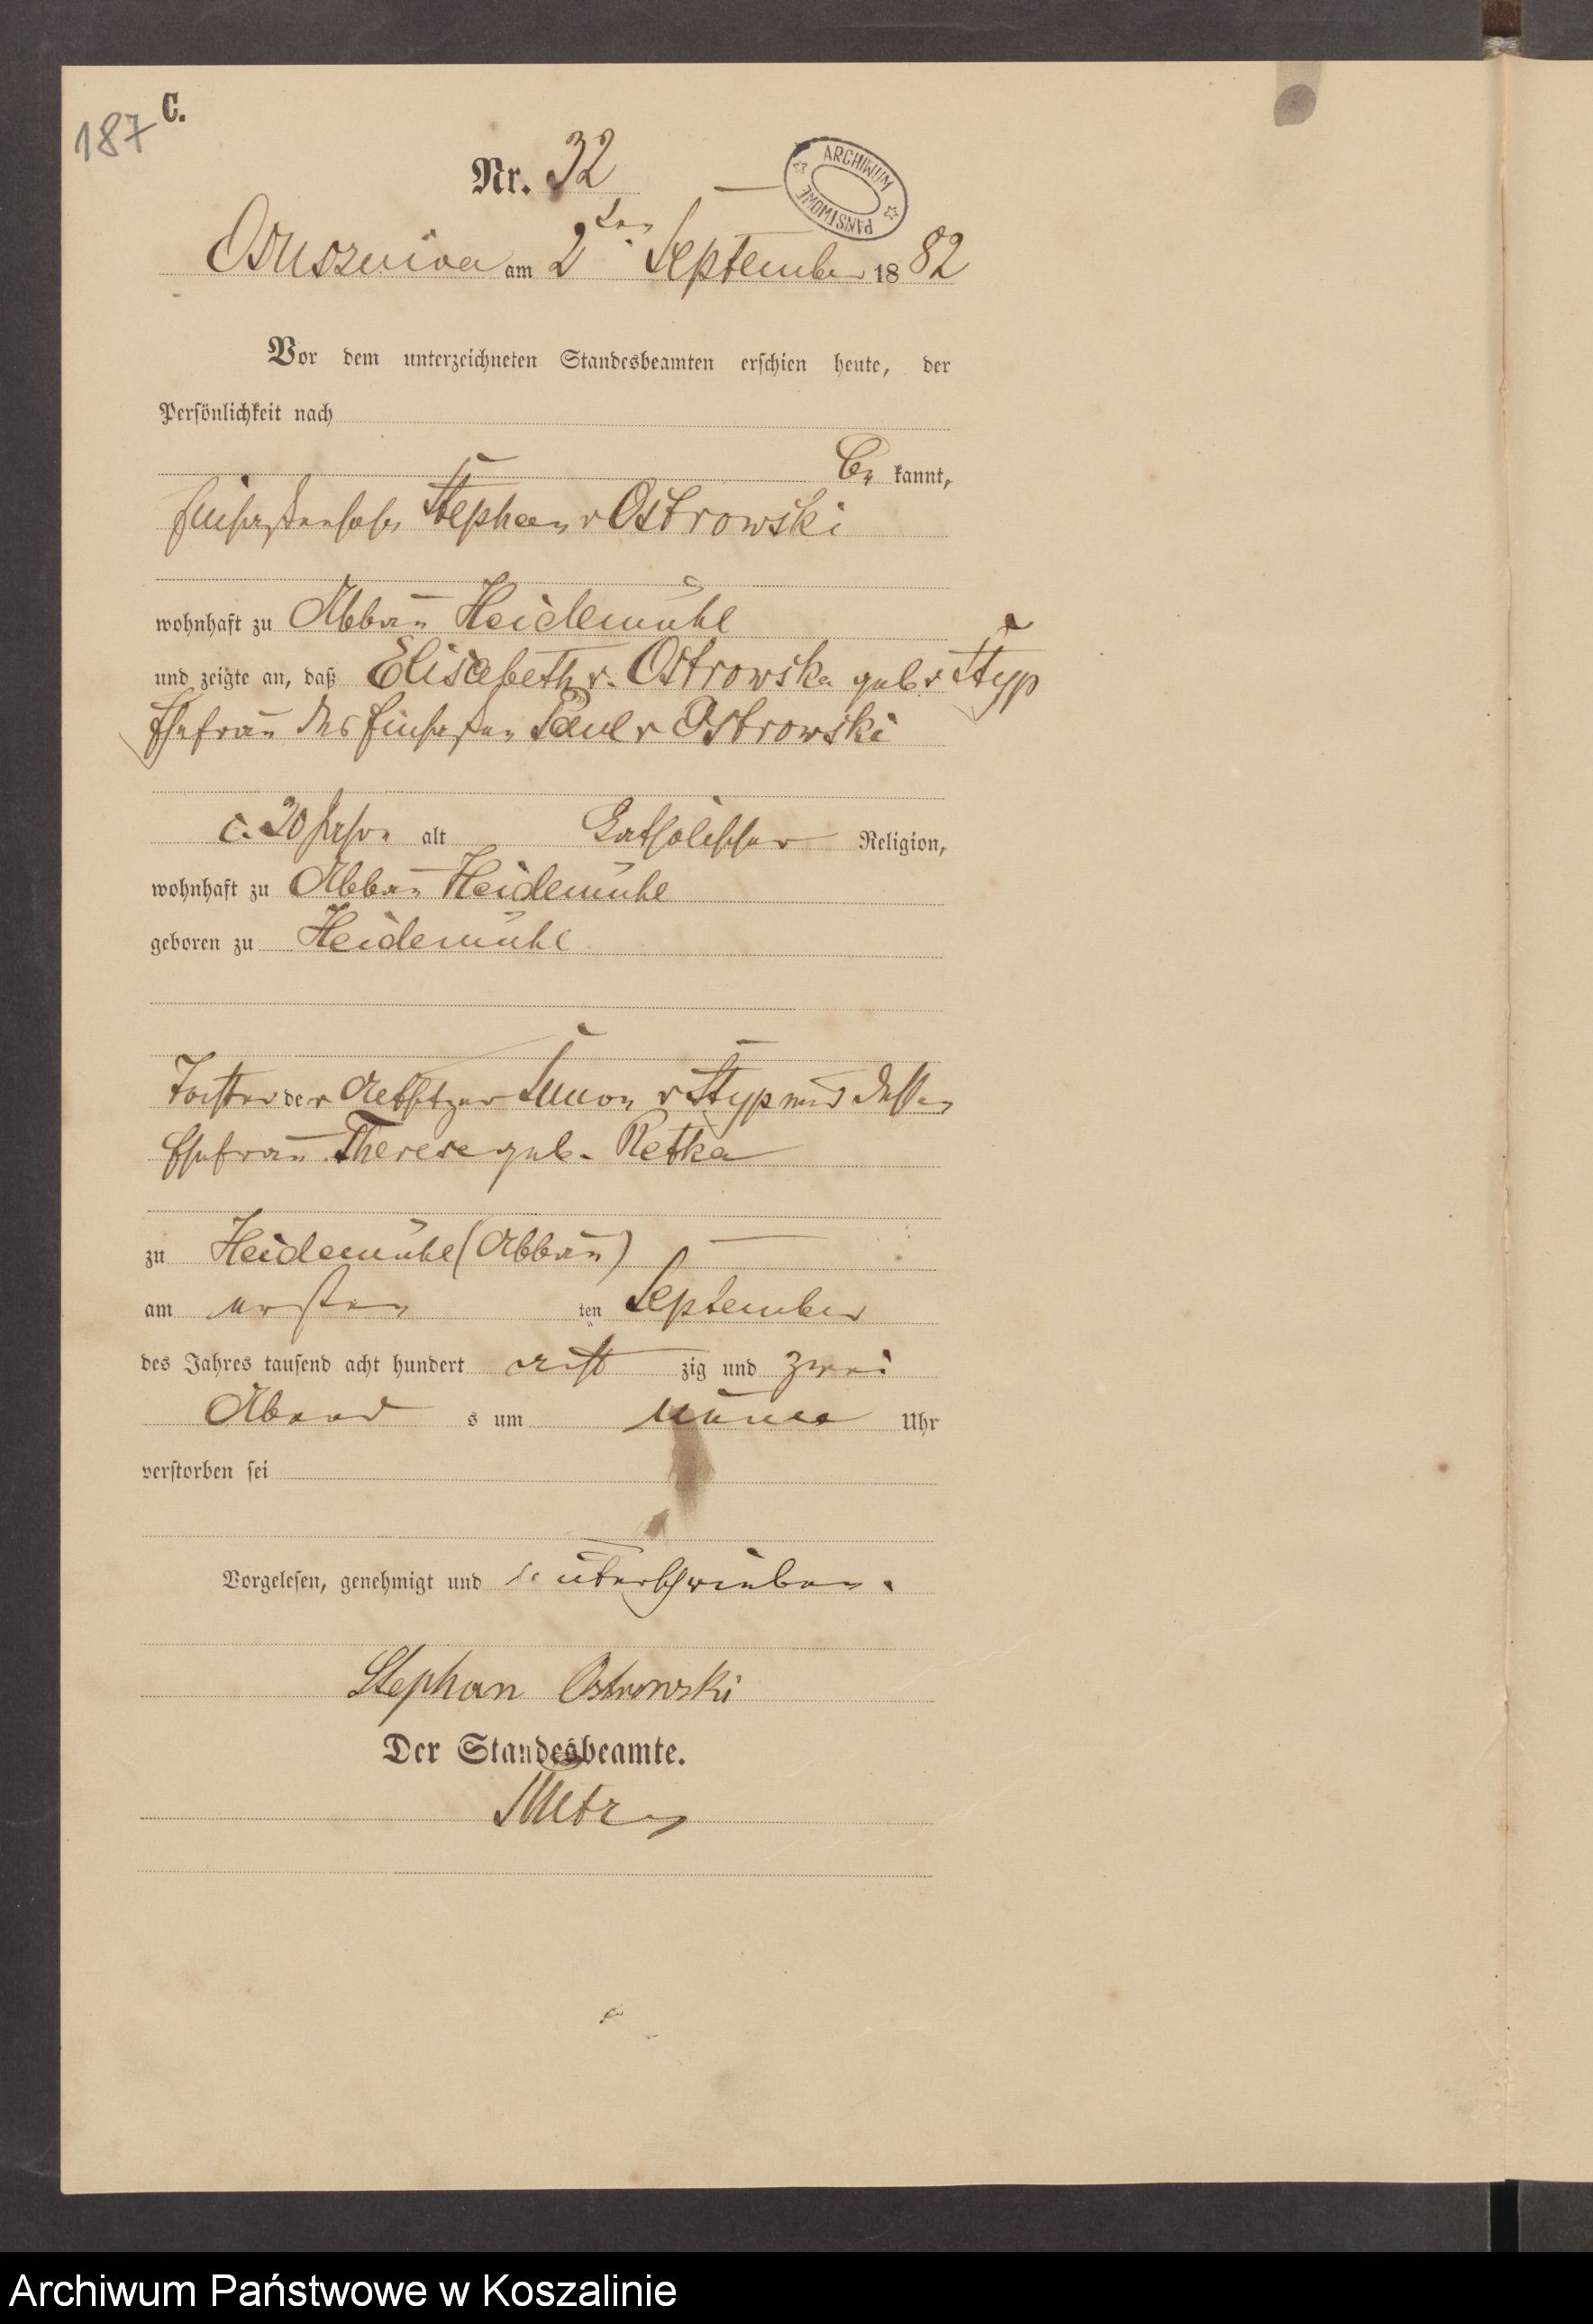 187 C.
Nr. 32
ARCHIWUM PAŃSTWOWE
Osusznica am 2ten September 1882
Vor dem unterzeichneten Standesbeamten erschien heute, der
Persönlichkeit nach
be kannt,
Einsaßensohn Stephan v Ostrowski
wohnhaft zu Abbau Heidemühl
und zeigte an, daß Elisabeth v. Ostrowska geb v Styp
Ehefrau des Einsaßen Paul v Ostrowski
c. 30 Jahre alt Katholischer Religion,
wohnhaft zu Abbau Heidemühl
geboren zu Heidemühl
Tochter der Altsitzer Simon v Styp und dessen
Ehefrau Therese geb. Retka
zu Heidemühl (Abbau)
am ersten ten September
des Jahres tausend acht hundert acht zig und zwei
Abend s um neun Uhr
verstorben sei
Vorgelesen, genehmigt und unterschrieben.
Stephan Ostrowski
Der Standesbeamte.
Archiwum Państwowe w Koszalinie